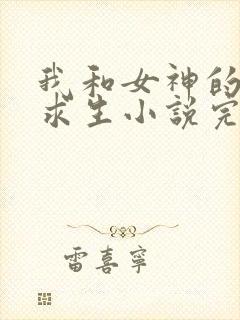 我和女神的
求生小說完
雷喜寧